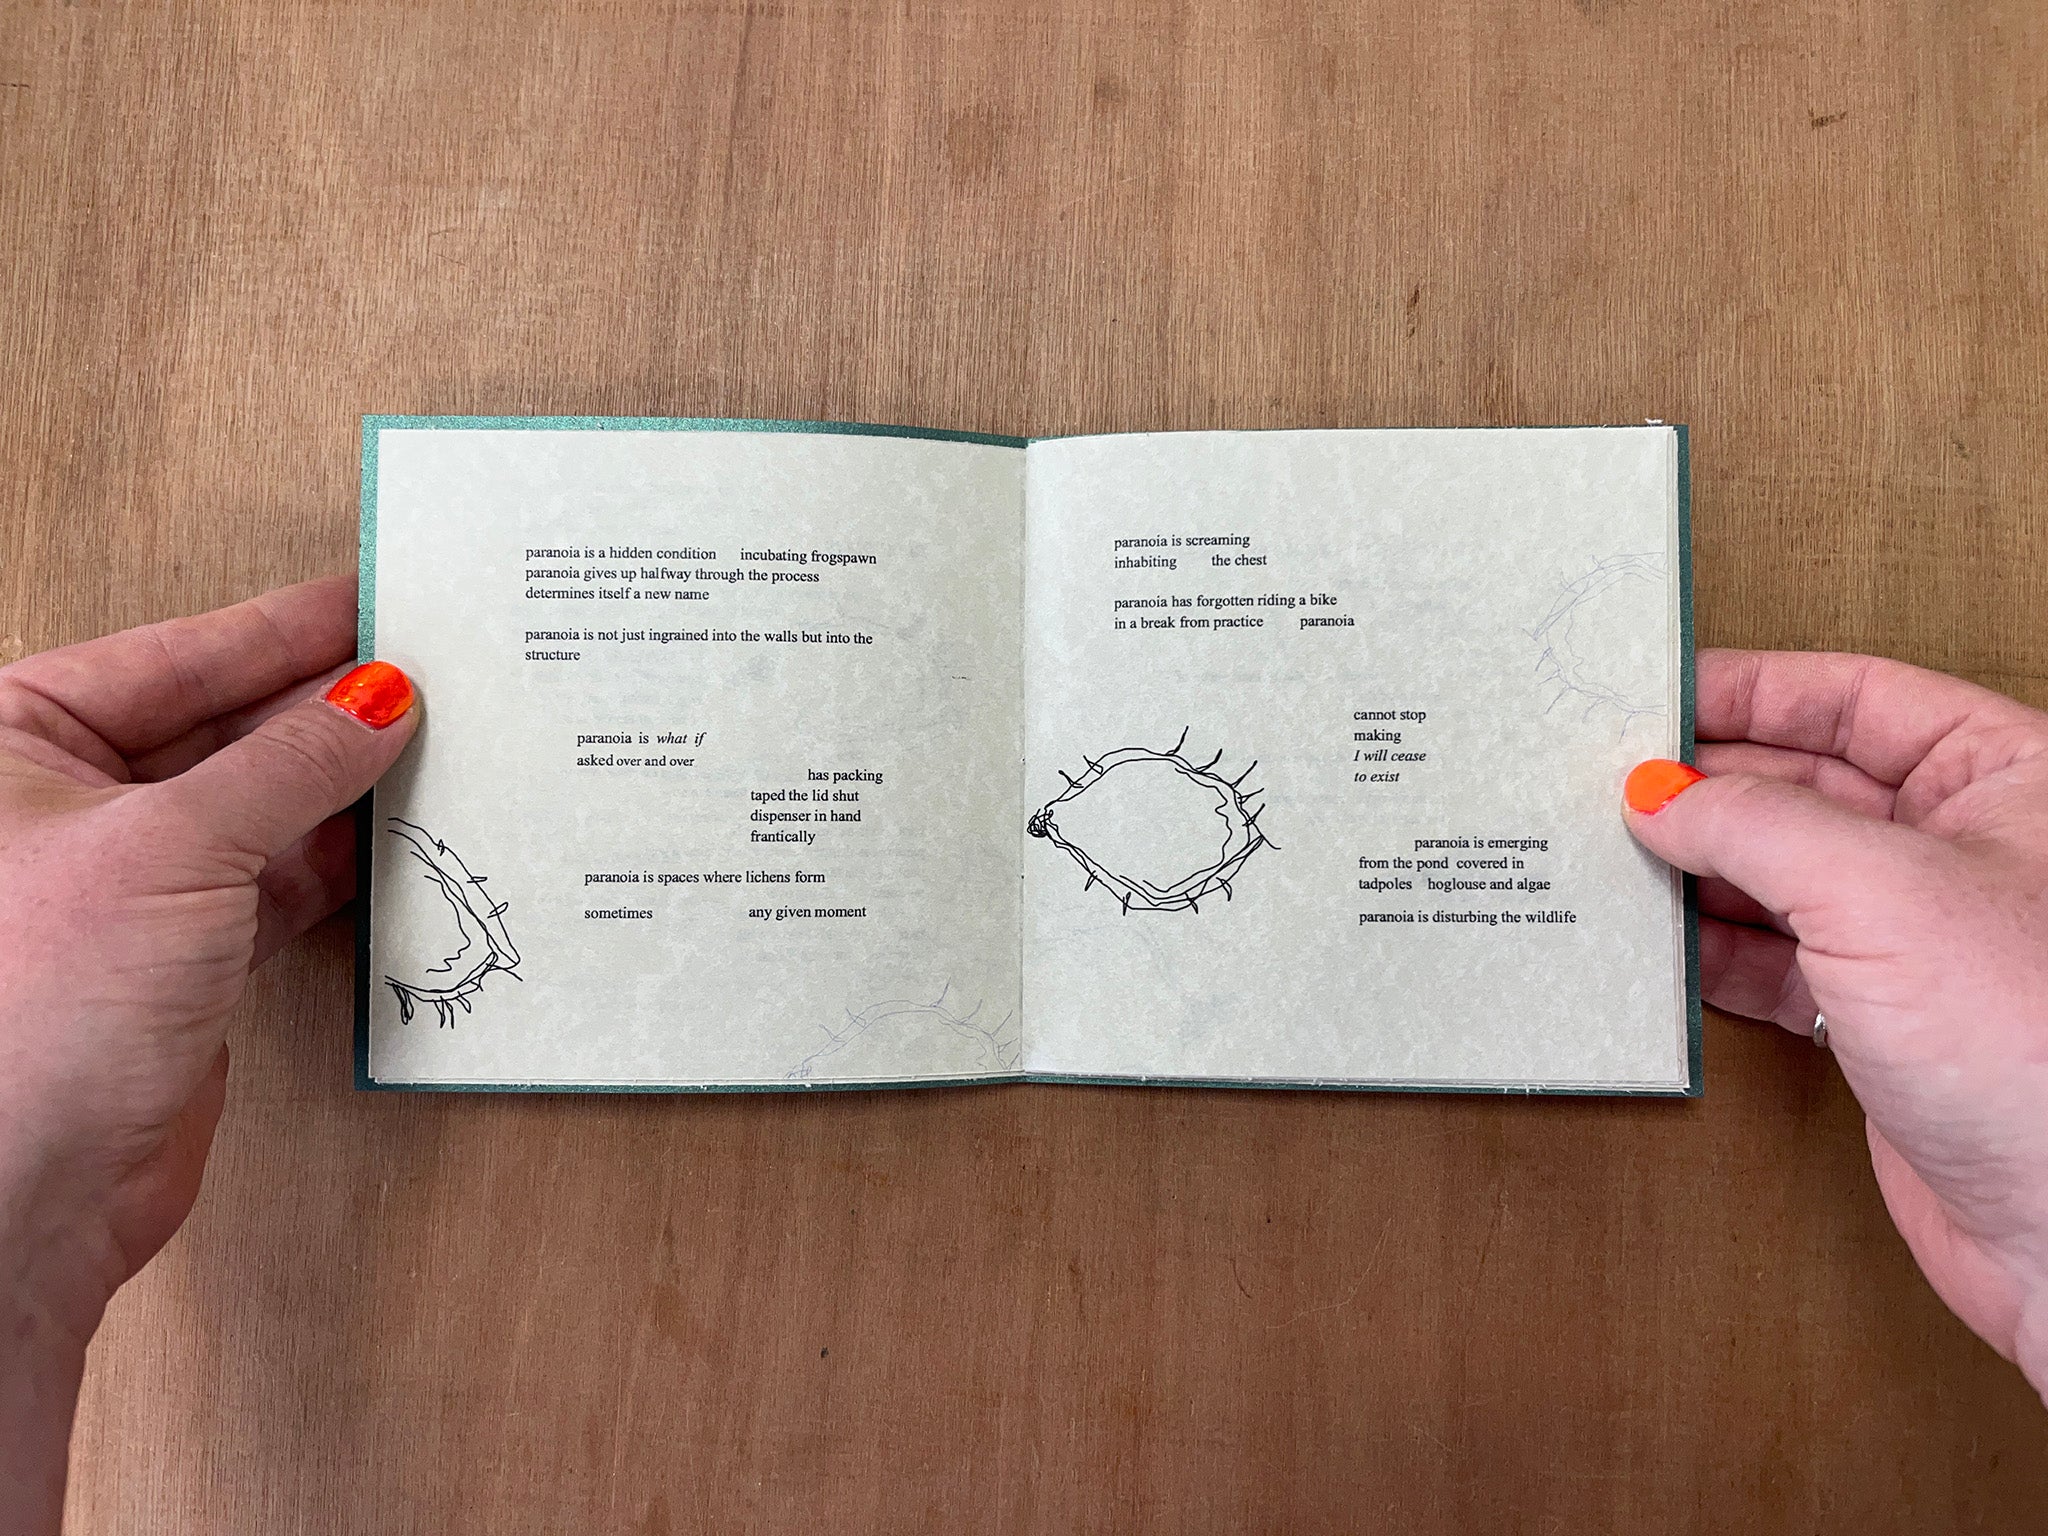 paranoia is a hidden condition incubating frogspawn
paranoia gives up halfway through the process
determines itself a new name
paranoia is not just ingrained into the walls but into the
structure
paranoia is what if
asked over and over
has packing
taped the lid shut
dispenser in hand
frantically
paranoia is spaces where lichens form
sometimes any given moment
paranoia is screaming
inhabiting the chest
paranoia has forgotten riding a bike
in a break from practice paranoia
cannot stop
making
I will cease
to exist
paranoia is emerging
from the pond covered in
tadpoles hoglouse and algae
paranoia is disturbing the wildlife